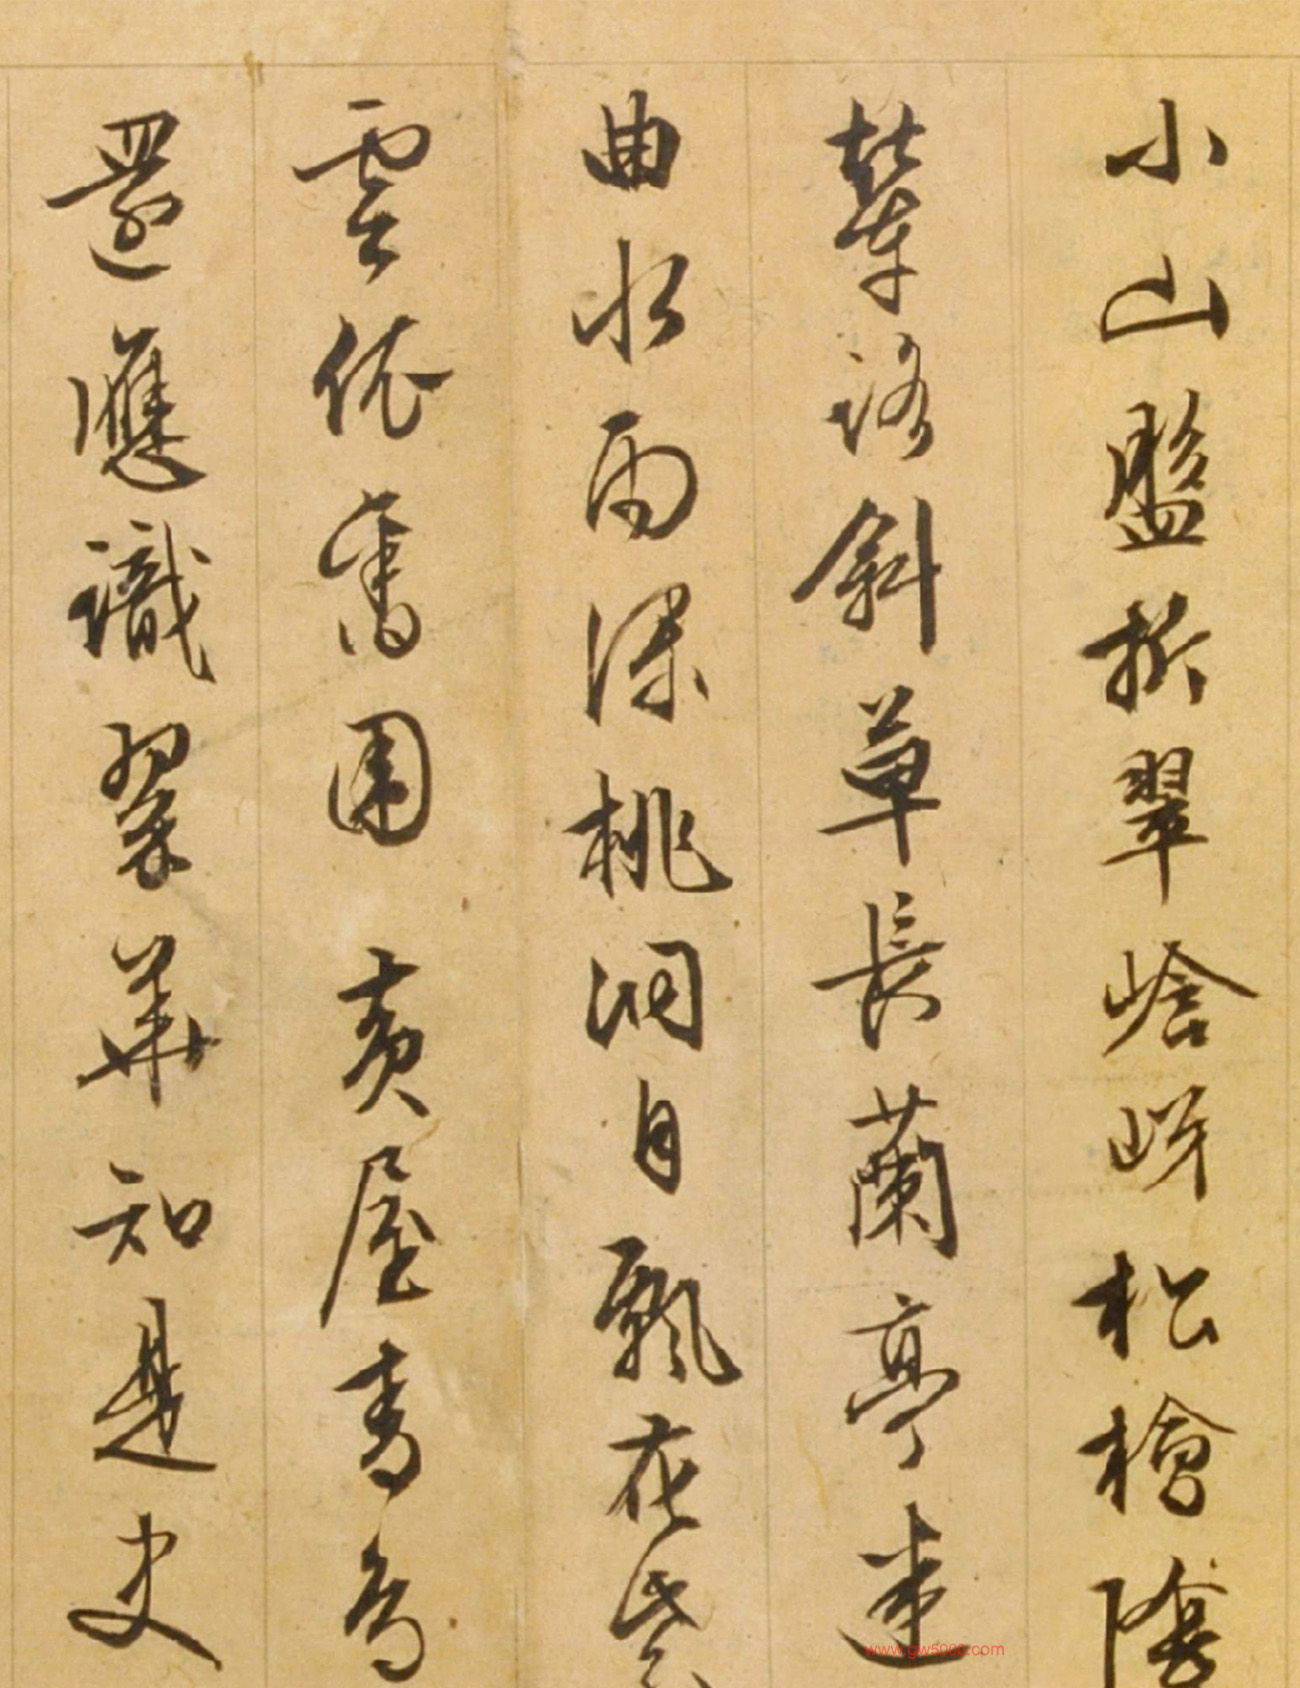 小山盤折翠崎嶇松檜陰
輦路斜草長蘭亭迷
曲水雨深桃洞自飄花紫
雲依舊圍黃屋青鳥
還應識翠華知是史
www.gw5000.com